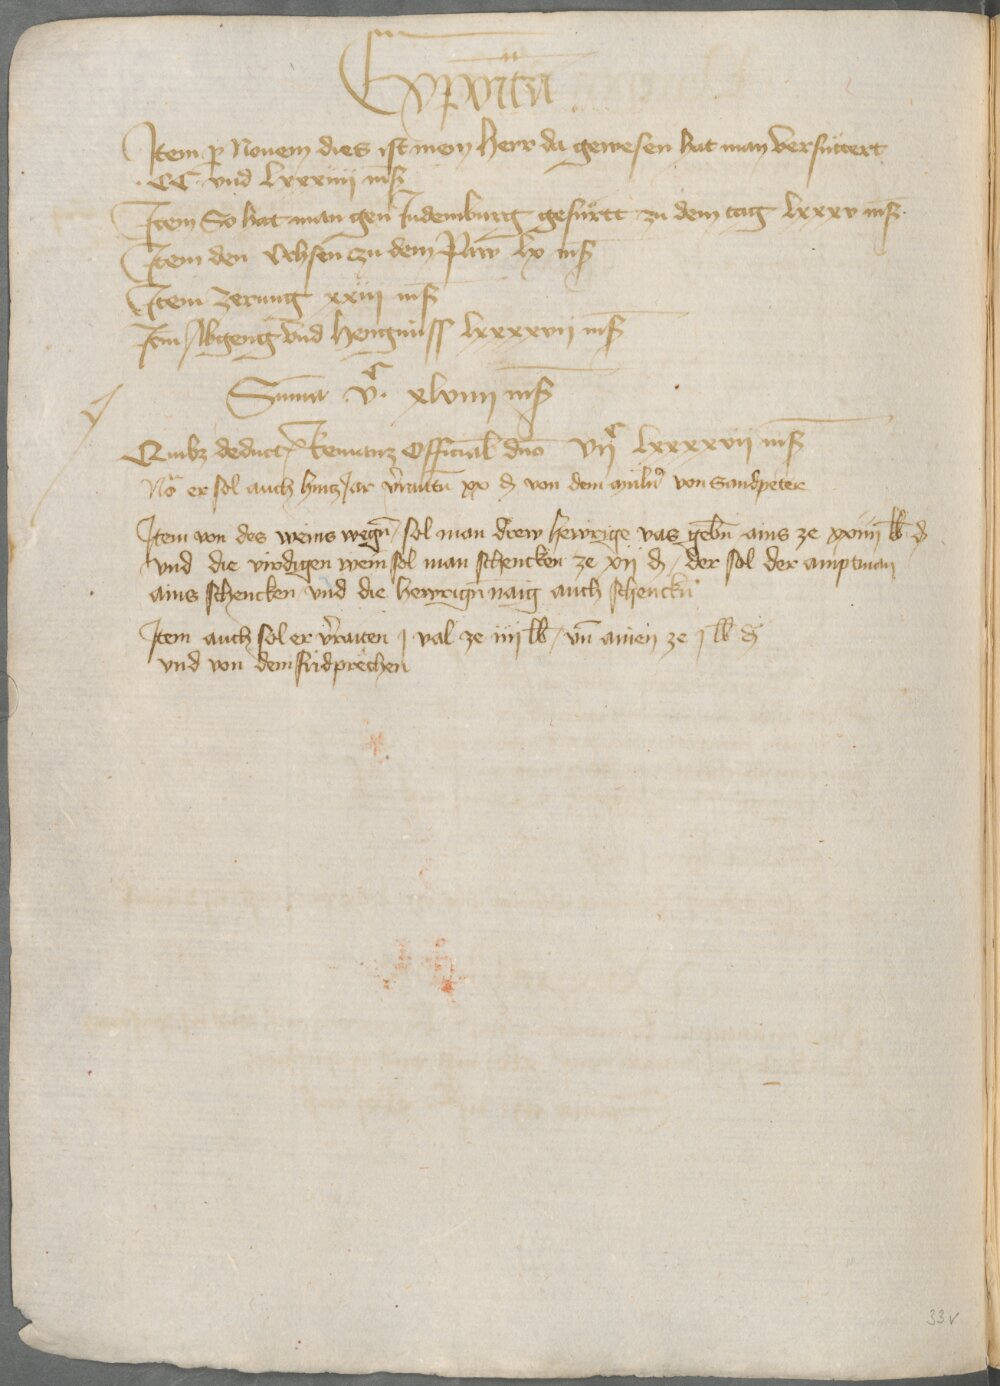 Exposita
Item p Nouem dies ist mein herr da gewesen hat man verfüttert
· CC · vnd lxxxiiij mß
Item So hat man gen Judemburg gefürtt zu dem tag lxxxv mß
Item den Ochsen zu dem Paw lx mß
Item Zerung xxiij mß
Itm Abgeng vnd hengnuss lxxxxvij mß
Suma vC · xlviiij mß
Quibz deduct remanz Official dno vijC lxxxxvij mß
No er sol auch hintz Jar vraittn xx d von dem von Sandpeter
Item von des weins wegn / sol man drew hewrige vas gebn ains ze xxiiij lb d
vnd die virdigen wein sol man schencken ze xij d / der sol der amptman
ains schencken vnd die hewrign naig auch schenckn
Item auch sol er vraiten j val ze iiij lb / vn ainen ze j lb d
vnd von dem fridprechen
33v